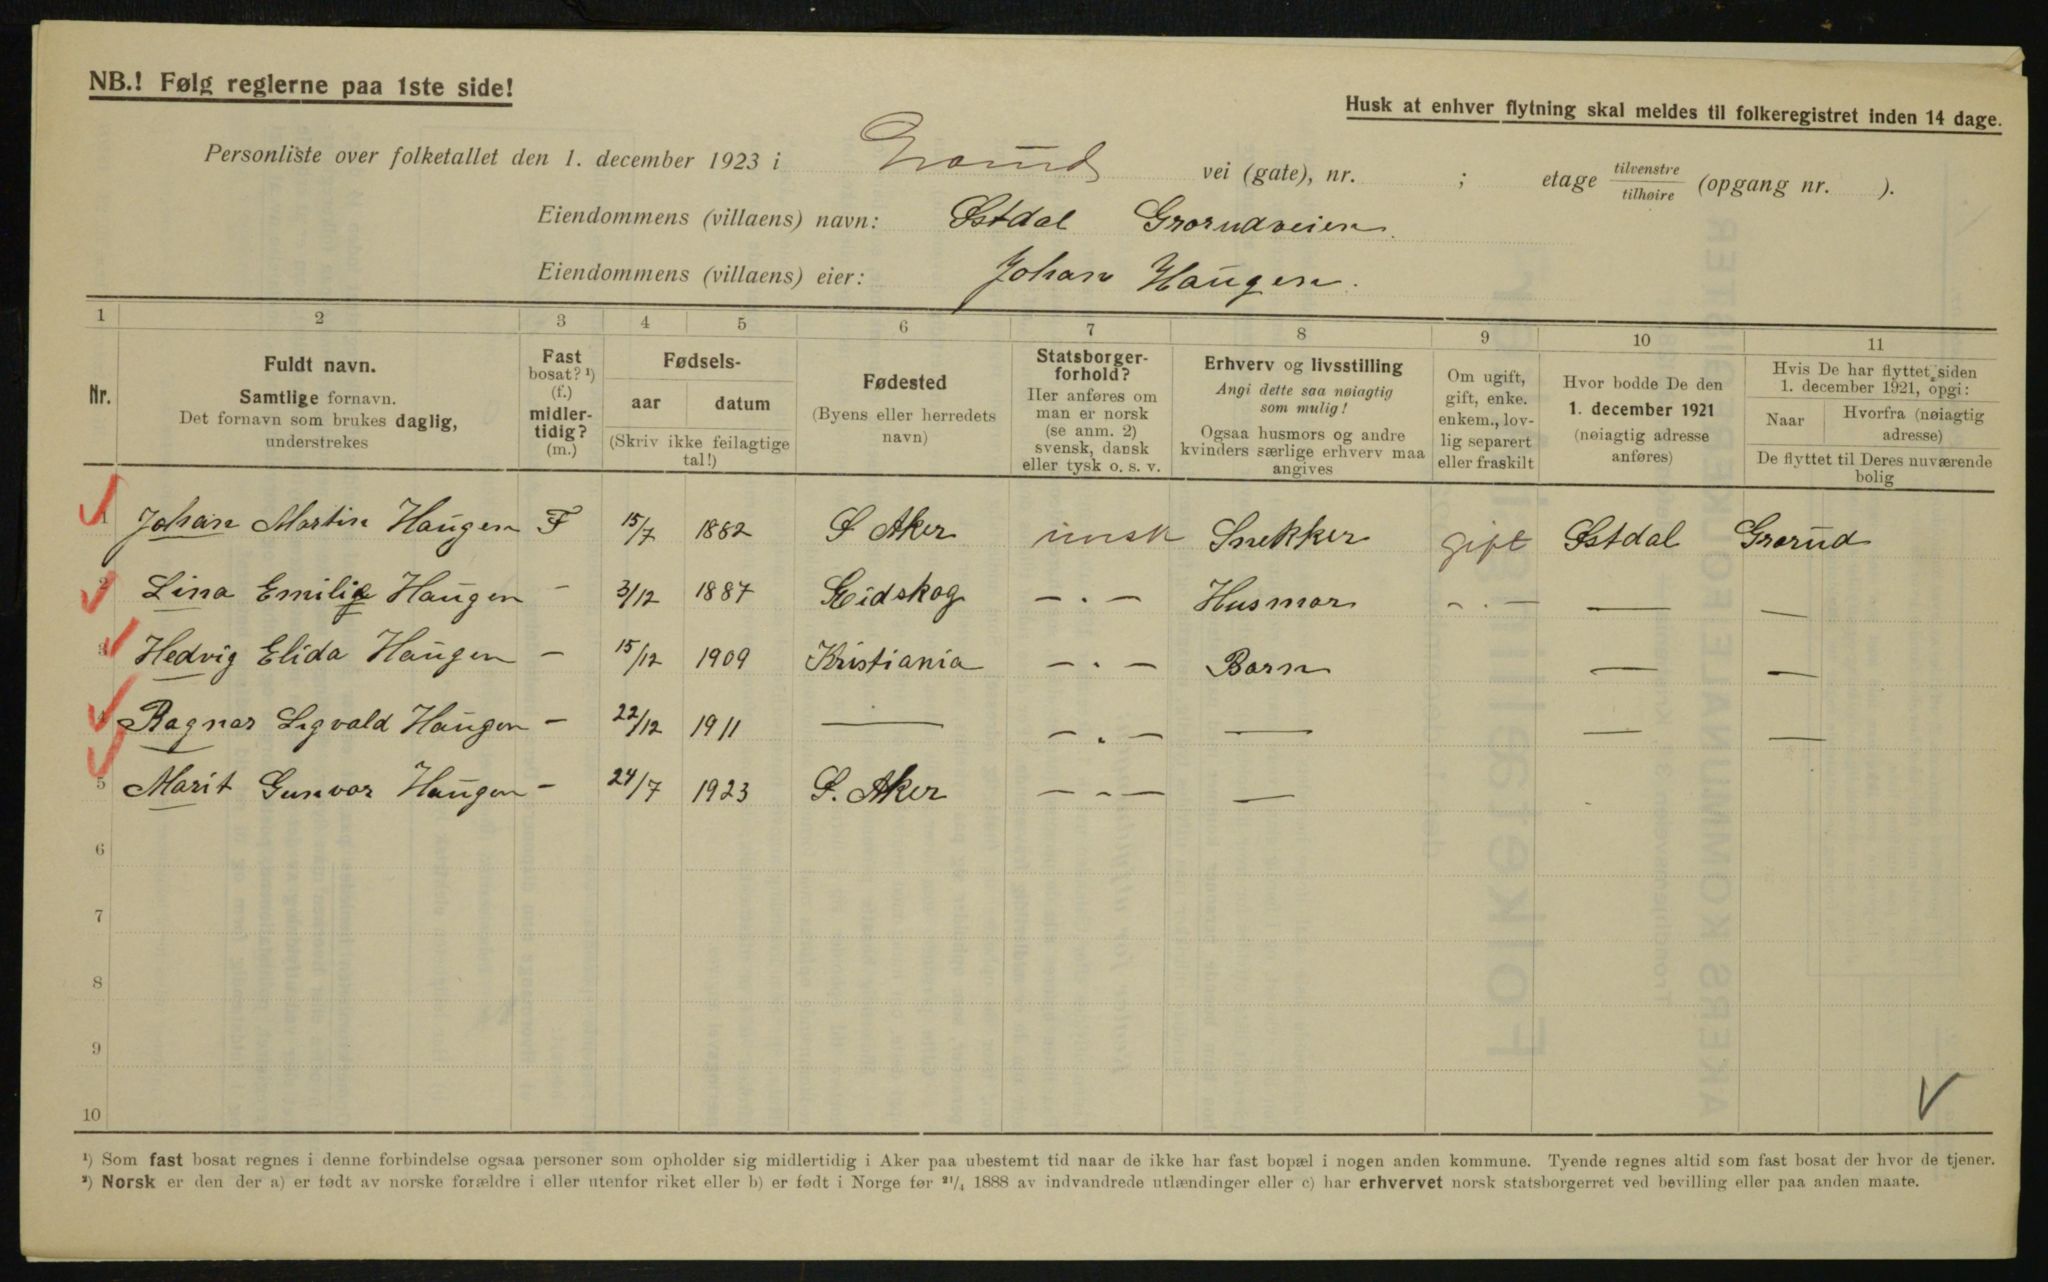 NB.! Følg reglerne paa 1ste side!
Husk at enhver flytning skal meldes til folkeregistret inden 14 dage.
Personliste over folketallet den 1. december 1923 i Grorud vei (gate), nr. ; etage tilvenstre tilhøire (opgang nr. ).
Eiendommens (villaens) navn: Østdal Grorudveien.
Eiendommens (villaens) eier: Johan Haugen.
1 2 3 4 5 6 7 8 9 10 11
Nr.
Fuldt navn.
Samtlige fornavn.
Det fornavn som brukes daglig,
understrekes
Fast
bosat? ¹)
(f.)
midler-
tidig?
(m.)
Fødsels-
aar datum
(Skriv ikke feilagtige
tal!)
Fødested
(Byens eller herredets
navn)
Statsborger-
forhold?
Her anføres om
man er norsk
(se anm. 2)
svensk, dansk
eller tysk o. s. v.
Erhverv og livsstilling
Angi dette saa nøiagtig
som mulig!
Ogsaa husmors og andre
kvinders særlige erhverv maa
angives
Om ugift,
gift, enke.
enkem., lov-
lig separert
eller fraskilt
Hvor bodde De den
1. december 1921
(nøiagtig adresse
anføres)
Hvis De har flyttet siden
1. december 1921, opgi:
Naar Hvorfra (nøiagtig
adresse)
De flyttet til Deres nuværende
bolig
1 Johan Martin Haugen F 15/7 1882 Ø Aker norsk Snekker gift Østdal Grorud
2 Lina Emilie Haugen – 3/12 1887 Eidskog – . – Husmor – . – — —
3 Hedvig Elida Haugen – 15/12 1909 Kristiania – . – Barn — —
4 Ragnar Sigvald Haugen – 22/12 1911 — – . – — — —
5 Marit Gunvor Haugen – 24/7 1923 Ø. Aker – – – —
6
7
8
9
10
¹) Som fast bosat regnes i denne forbindelse ogsaa personer som opholder sig midlertidig i Aker paa ubestemt tid naar de ikke har fast bopæl i nogen anden kommune. Tyende regnes altid som fast bosat der hvor de tjener.
²) Norsk er den der a) er født av norske forældre i eller utenfor riket eller b) er født i Norge før ²¹/₄ 1888 av indvandrede utlændinger eller c) har erhvervet norsk statsborgerret ved bevilling eller paa anden maate.